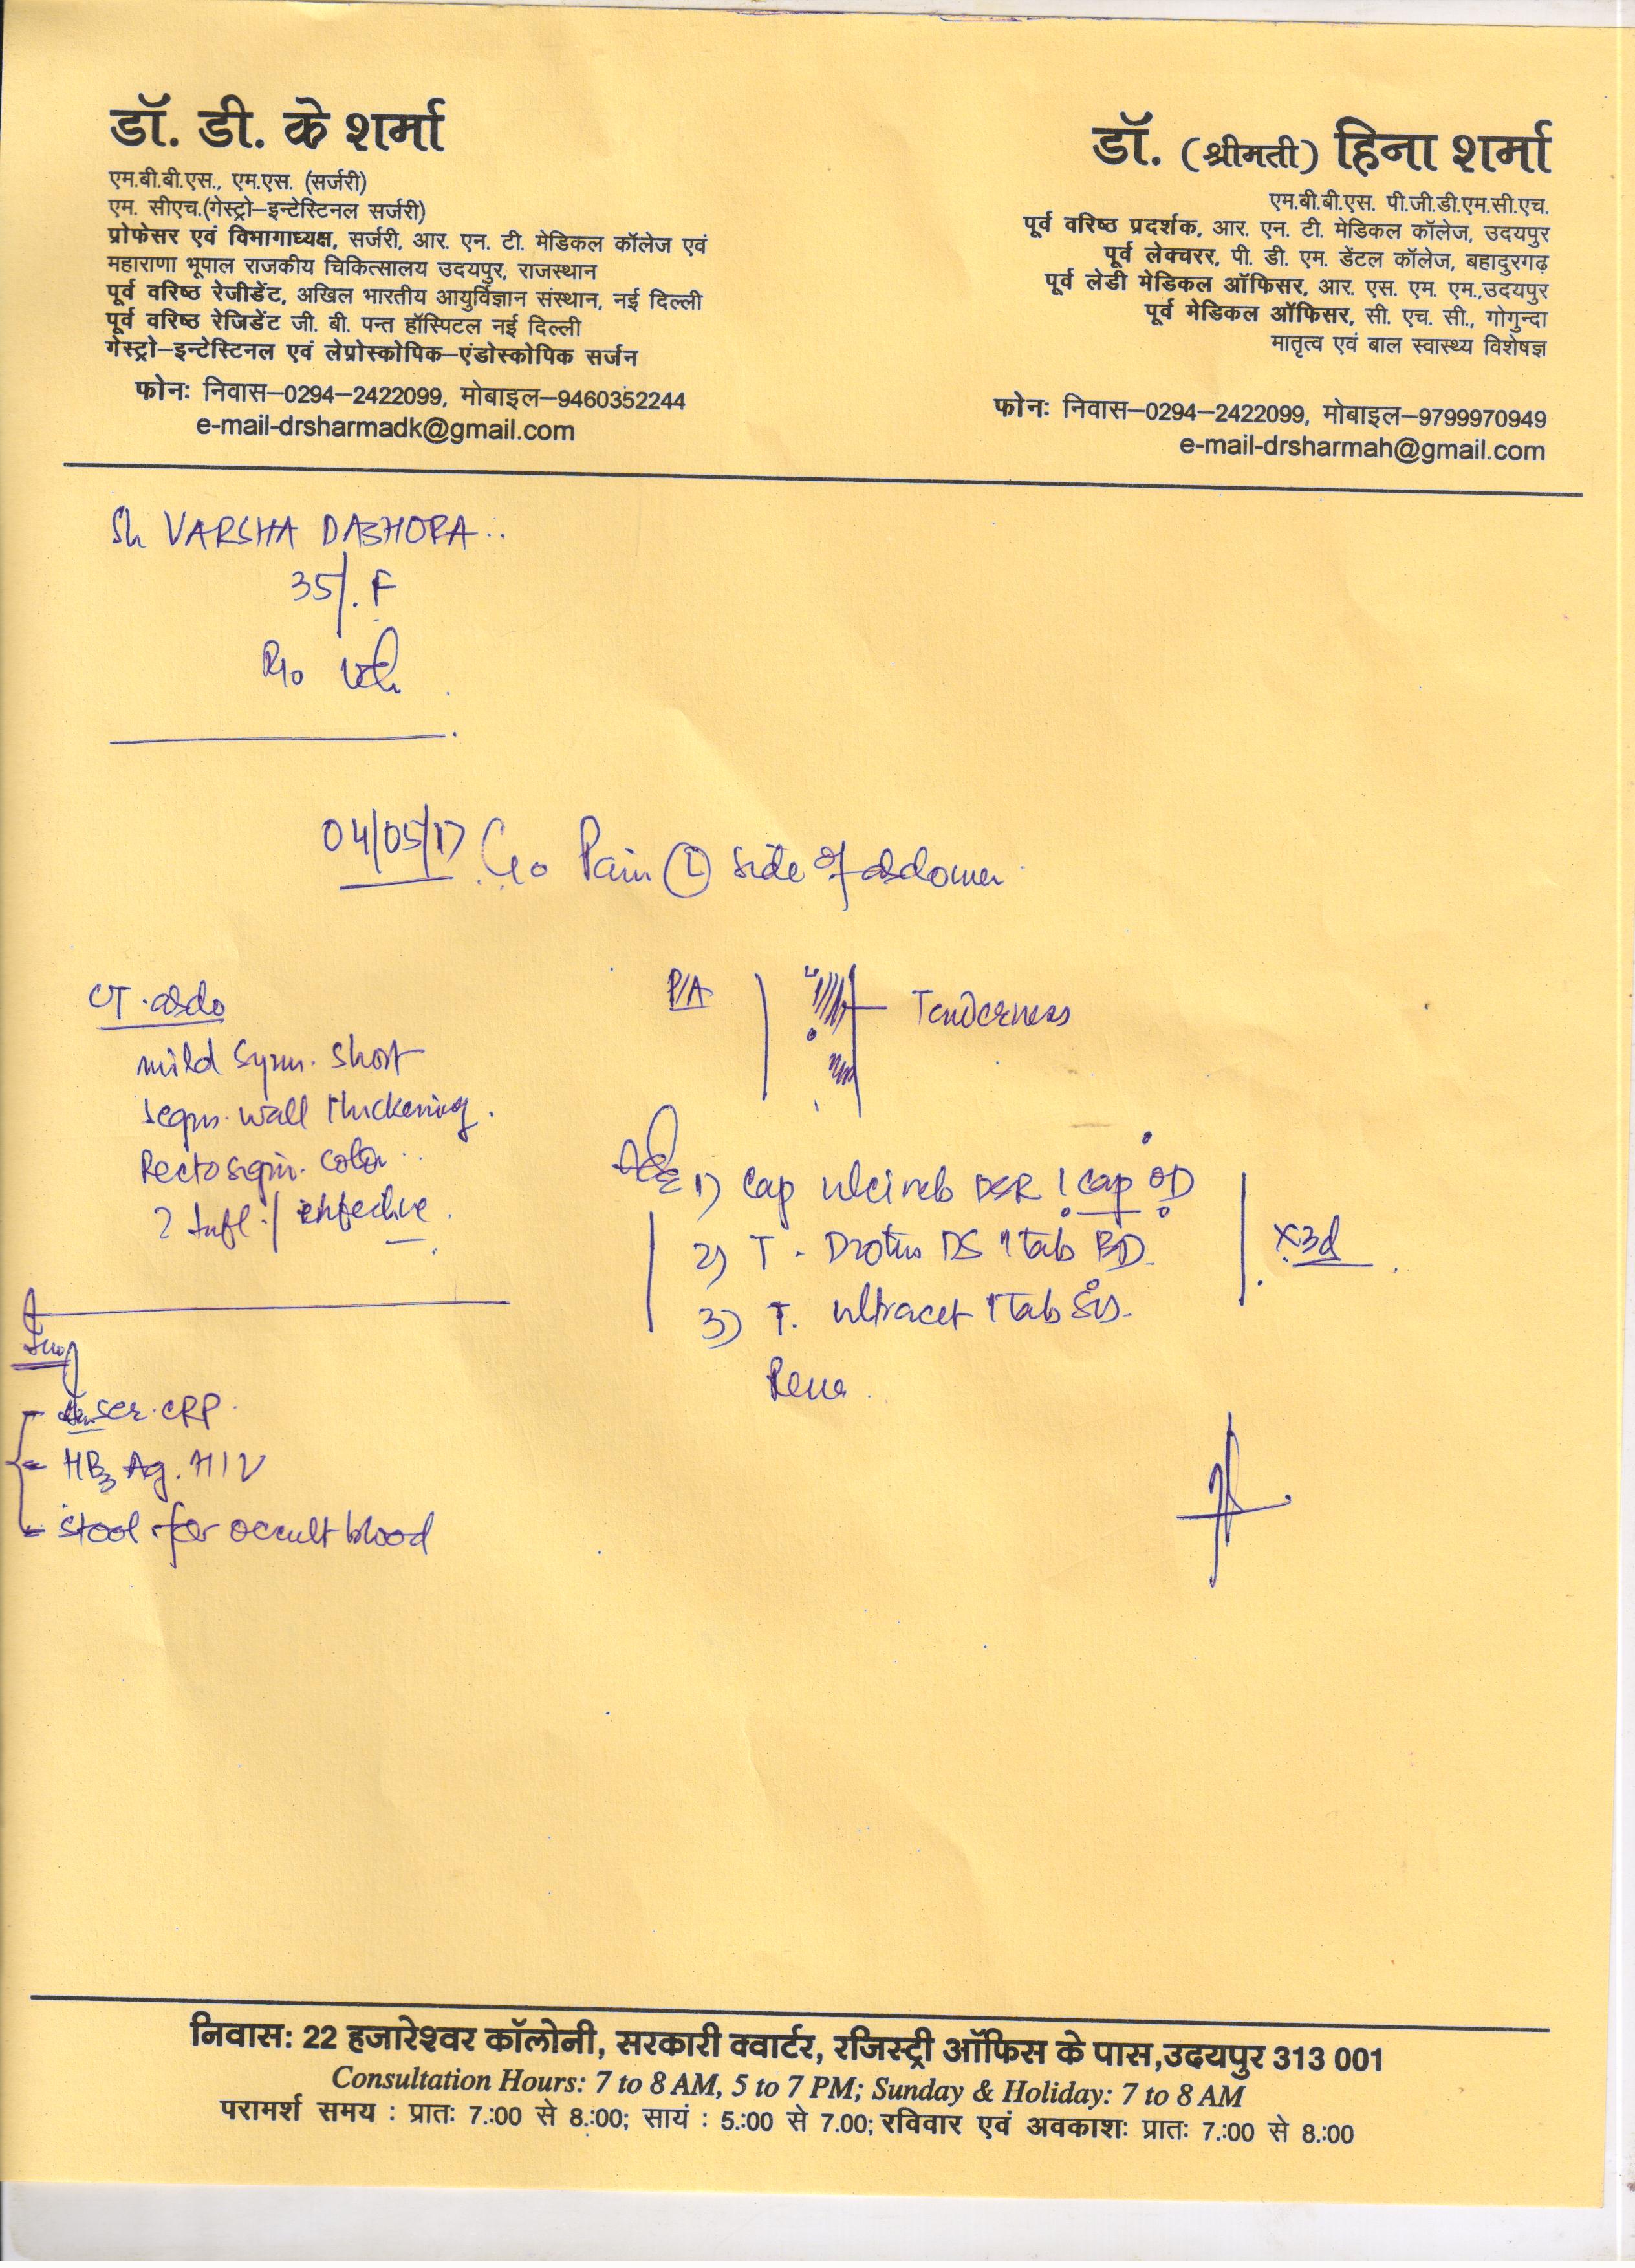 डॉ. डी. के शर्मा
एम.बी.बी.एस., एम.एस. (सर्जरी)
एम. सीएच.(गेस्ट्रो–इन्टेस्टिनल सर्जरी)
प्रोफेसर एवं विभागाध्यक्ष, सर्जरी, आर. एन. टी. मेडिकल कॉलेज एवं
महाराणा भूपाल राजकीय चिकित्सालय उदयपुर, राजस्थान
पूर्व वरिष्ठ रेजीडेंट, अखिल भारतीय आयुर्विज्ञान संस्थान, नई दिल्ली
पूर्व वरिष्ठ रेजिडेंट जी. बी. पन्त हॉस्पिटल नई दिल्ली
गेस्ट्रो–इन्टेस्टिनल एवं लेप्रोस्कोपिक–एंडोस्कोपिक सर्जन
फोनः निवास–0294–2422099, मोबाइल–9460352244
e-mail-drsharmadk@gmail.com
डॉ. (श्रीमती) हिना शर्मा
एम.बी.बी.एस. पी.जी.डी.एम.सी.एच.
पूर्व वरिष्ठ प्रदर्शक, आर. एन. टी. मेडिकल कॉलेज, उदयपुर
पूर्व लेक्चरर, पी. डी. एम. डेंटल कॉलेज, बहादुरगढ़
पूर्व लेडी मेडिकल ऑफिसर, आर. एस. एम. एम.,उदयपुर
पूर्व मेडिकल ऑफिसर, सी. एच. सी., गोगुन्दा
मातृत्व एवं बाल स्वास्थ्य विशेषज्ञ
फोनः निवास–0294–2422099, मोबाइल–9799970949
e-mail-drsharmah@gmail.com
VARSHA DASHORA
35/. F
04/05/17 C/o Pain (L) side of abdomen
P/A Tenderness
CT. abdo
mild symm. short
segm. wall thickening.
Rectosigm. colon
? Infl./ infective.
1) Cap DSR 1 cap OD
2) T. Drotin DS 1 tab BD
3) T. ultracet 1 tab SOS
X3d
ser. CRP.
HBsAg. HIV
stool for occult blood
निवास: 22 हजारेश्वर कॉलोनी, सरकारी क्वार्टर, रजिस्ट्री ऑफिस के पास,उदयपुर 313 001
Consultation Hours: 7 to 8 AM, 5 to 7 PM; Sunday & Holiday: 7 to 8 AM
परामर्श समय : प्रातः 7.:00 से 8.:00; सायं : 5.:00 से 7.00; रविवार एवं अवकाशः प्रातः 7.:00 से 8.:00